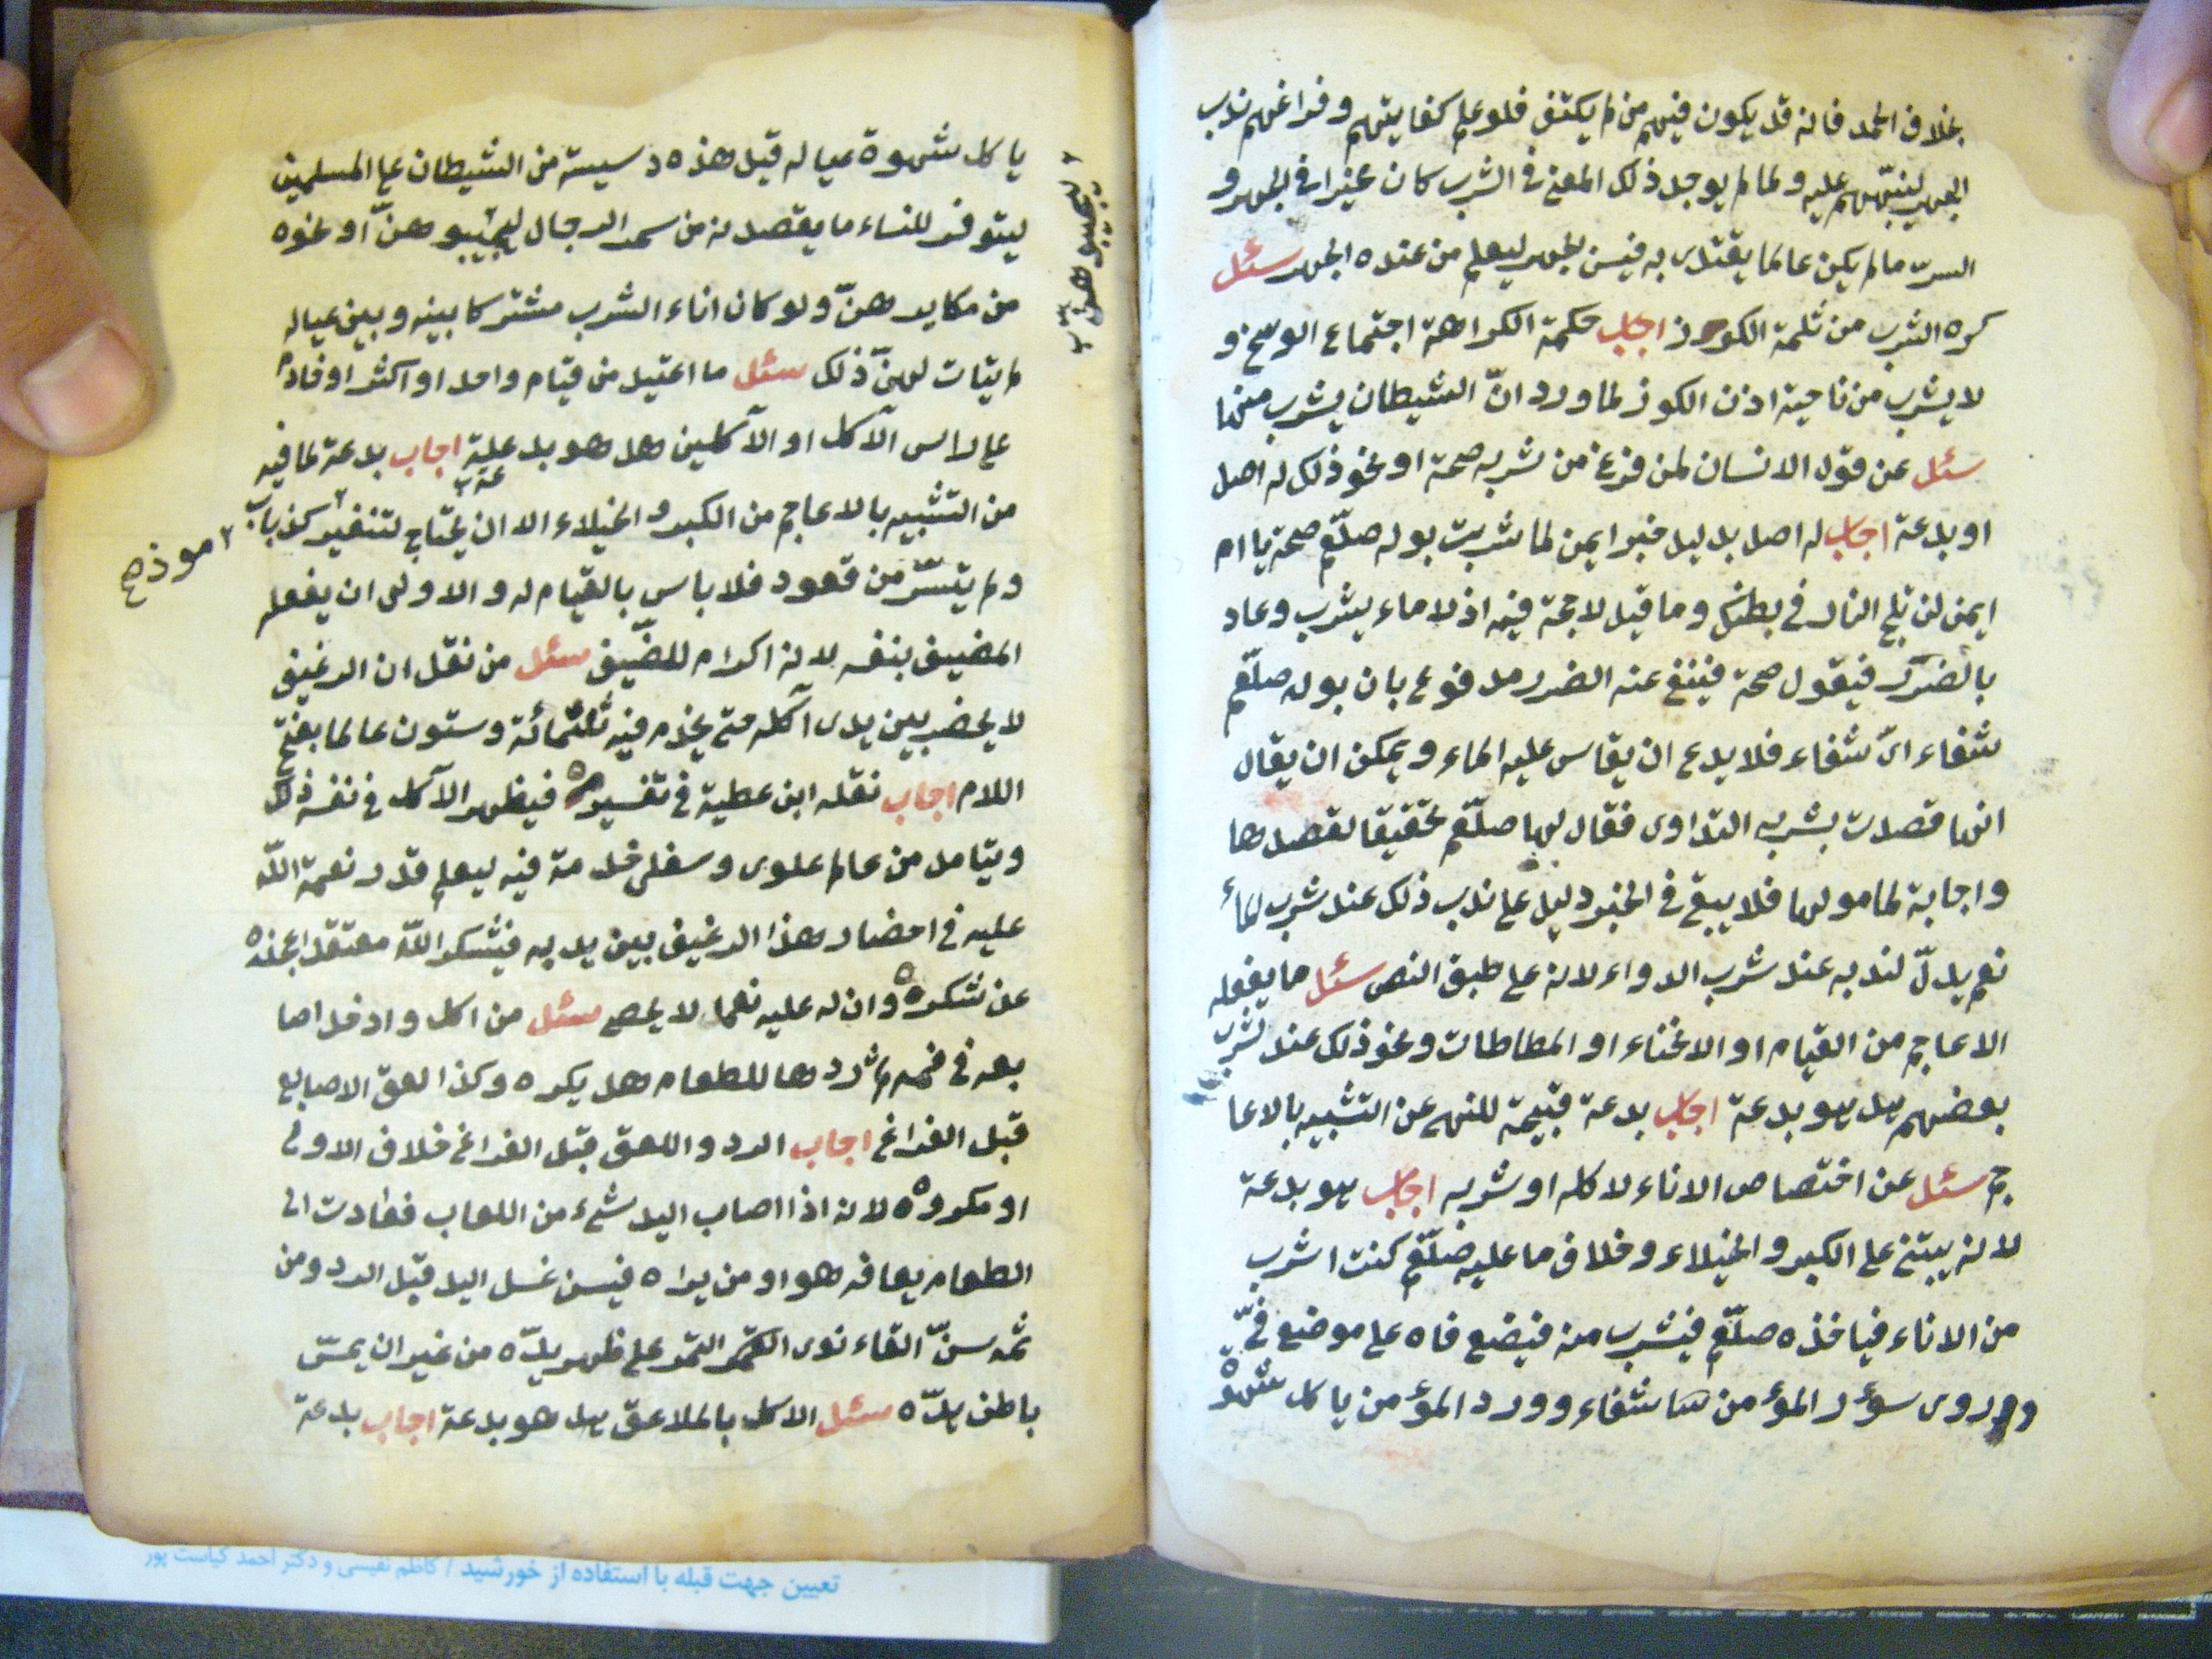 بخلاف الحمد فانه قد يكون فيهم من لم يكتف فلو علم كفايتهم وفراغهم ندب
الجهر لينبههم عليه ولما لم يوجد ذلك المعنى في الشرب كان مخيرا في الجهر و
السرّ ما لم يكن عالما يقتدى به فيسن الجهر ليعلم من عنده الجهر سئل
كره الشرب من ثلمة الكوز اجاب حكمة الكراهة اجتماع الوسخ و
لا يشرب من ناحية اذن الكوز لما ورد انّ الشيطان يشرب منها
سئل عن قول الانسان لمن فرغ من شربه صحة او نحو ذلك له اصل
او بدعة اجاب له اصل بدليل خبر ام ايمن لما شربت بوله صلعم صحة يا ام
ايمن لن تلج النار في بطنك وما قيل لا حجة فيه اذ لا ماء يشرب وعاد
بالضرر فيقول صحة فينفع عنه الضرر مدفوع بان بوله صلعم
شفاء اىّ شفاء فلا بدع ان يقاس عليه الماء ويمكن ان يقال
انها قصدت بشربه التداوى فقال لها صلعم تحقيقا لقصدها
واجابة لمامولها فلا يبقى في الخبر دليل على ندب ذلك عند شرب الماء
نعم يدلّ لندبه عند شرب الدواء لانه على طبق النص سئل ما يفعله
الاعاجم من القيام او الانحناء او المطاطات ونحو ذلك عند شرب
بعضهم هل هو بدعة اجاب بدعة قبيحة للنهى عن التشبيه بالاعا
جم سئل عن اختصاص الاناء لاكله او شربه اجاب هو بدعة
لانه يبتنى على الكبر والخيلاء وخلاف ما عليه صلعم كنت اشرب
من الاناء فياخذه صلعم فيشرب منه فيضع فاه على موضع فىّ
وروى سؤر المؤمن شفاء وورد المؤمن ياكل شهوة
ياكل شهوة عياله قيل هذه دسيسة من الشيطان على المسلمين
ليتوفر للنساء ما يقصدنه من سحر الرجال ليحبّبوهنّ او نحوه
٢ ليحببوهنّ
من مكايدهنّ ولو كان اناء الشرب مشتركا بينه وبين عياله
لم يتات لهنّ ذلك سئل ما اعتيد من قيام واحد او اكثر او خادم
على راس الآكل او الآكلين هل هو بدعة اجاب بدعة لما فيه
من التشبيه بالاعاجم من الكبر والخيلاء الا ان يحتاج لتنفير كذباب
٢ موذ صح
ولم يتيسّر من قعود فلا باس بالقيام له والاولى ان يفعله
المضيف بنفسه لانه اكرام للضيف سئل من نقل ان الرغيف
لا يحضر بين يدى آكله حتى يخدم فيه ثلثمائة وستون عالما بفتح
اللام اجاب نقله ابن عطية في تفسيره فيظهر الآكل في نفسه ذلك
ويتامل من عالم علوى وسفلى خدمة فيه ليعلم قدر نعمة اللّه
عليه في احضار هذا الرغيف بين يديه فيشكر اللّه معتقدا عجزه
عن شكره وان له عليه نعما لا يحصى سئل من اكل وادخل اصا
بعه في فمه ثم ردها للطعام هل يكره وكذا لعق الاصابع
قبل الفراغ اجاب الرد واللعق قبل الفراغ خلاف الاولى
او مكروه لانه اذا اصاب اليد شىء من اللعاب فعادت الى
الطعام يعافه هو او من يراه فيسن غسل اليد قبل الرد ومن
ثمه سنّ القاء نوى التمر على ظهر يده من غير ان يمسّ
باطن يدّه سئل الاكل بالملاعق هل هو بدعة اجاب بدعة
تعیین جهت قبله با استفاده از خورشید / کاظم نفیسی و دکتر احمد کیاست پور